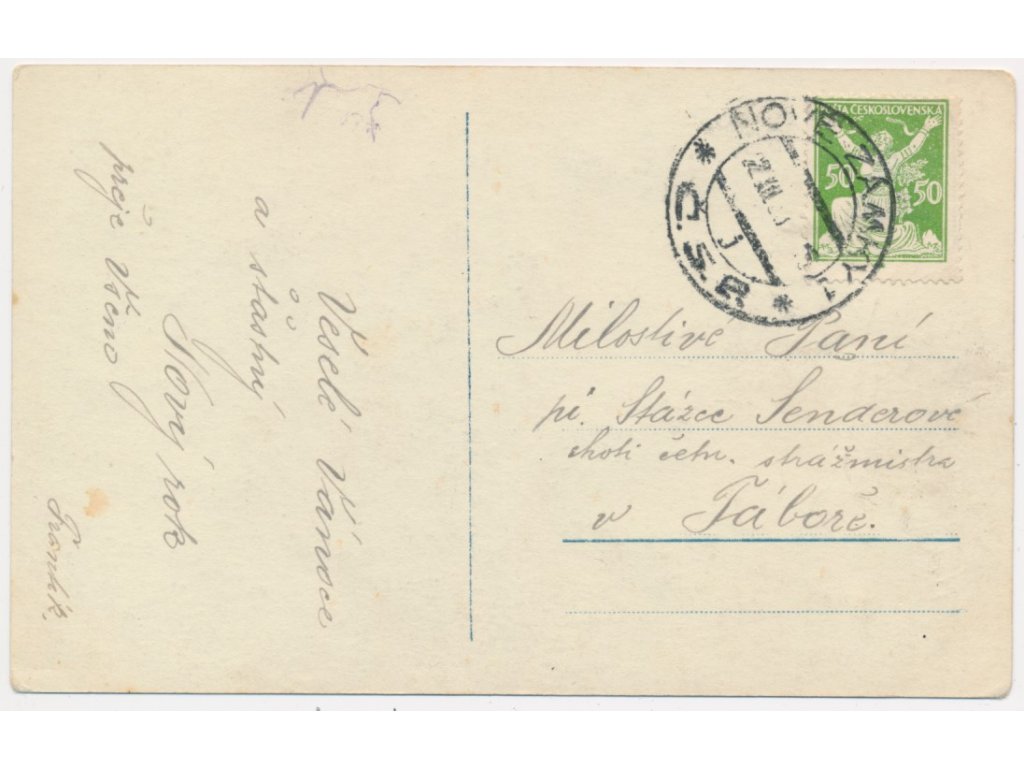 Veselé Vánoce
a stastný
Nový rok
přeje Všem
Frantík.
NOVÉ ZÁMKY 1
Č.S.R.
POŠTA ČESKOSLOVENSKÁ
50 50
Milostivé Paní
pí. Stázce Senderové
choti četn. strážmistra
v Táboře.